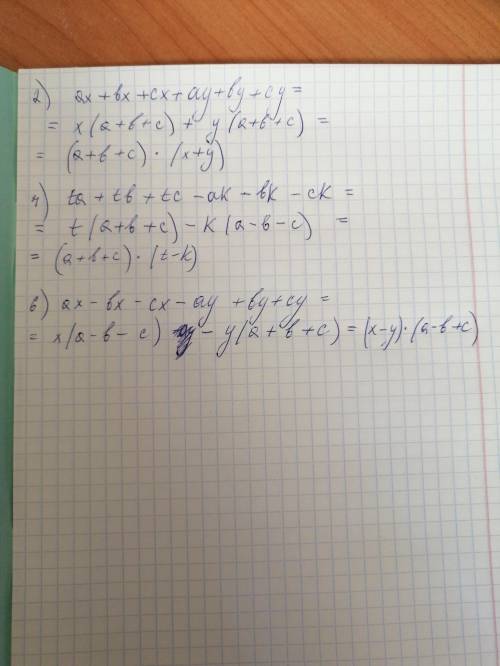 2) ax + bx + cx + ay + by + cy =
= x(a+b+c) + y(a+b+c) =
= (a+b+c) · (x+y)
4) ta + tb + tc - ak - bk - ck =
= t(a+b+c) - k(a-b-c) =
= (a+b+c) · (t-k)
6) ax - bx - cx - ay + by + cy =
= x(a-b-c) - y(a+b+c) = (x-y) · (a-b+c)